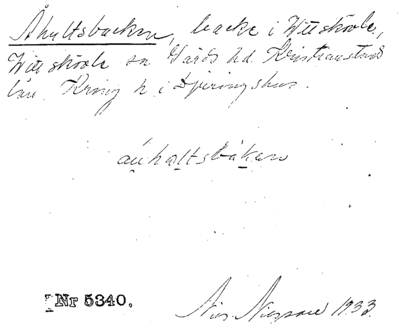 Åhultsbacken, backe i Vittskövle,
Vittskövle sn Gärds hd. Kristianstads
län. Kring h i Djuringshus.
áuhaltsbákan
Nr 5340.
Nils 1933.